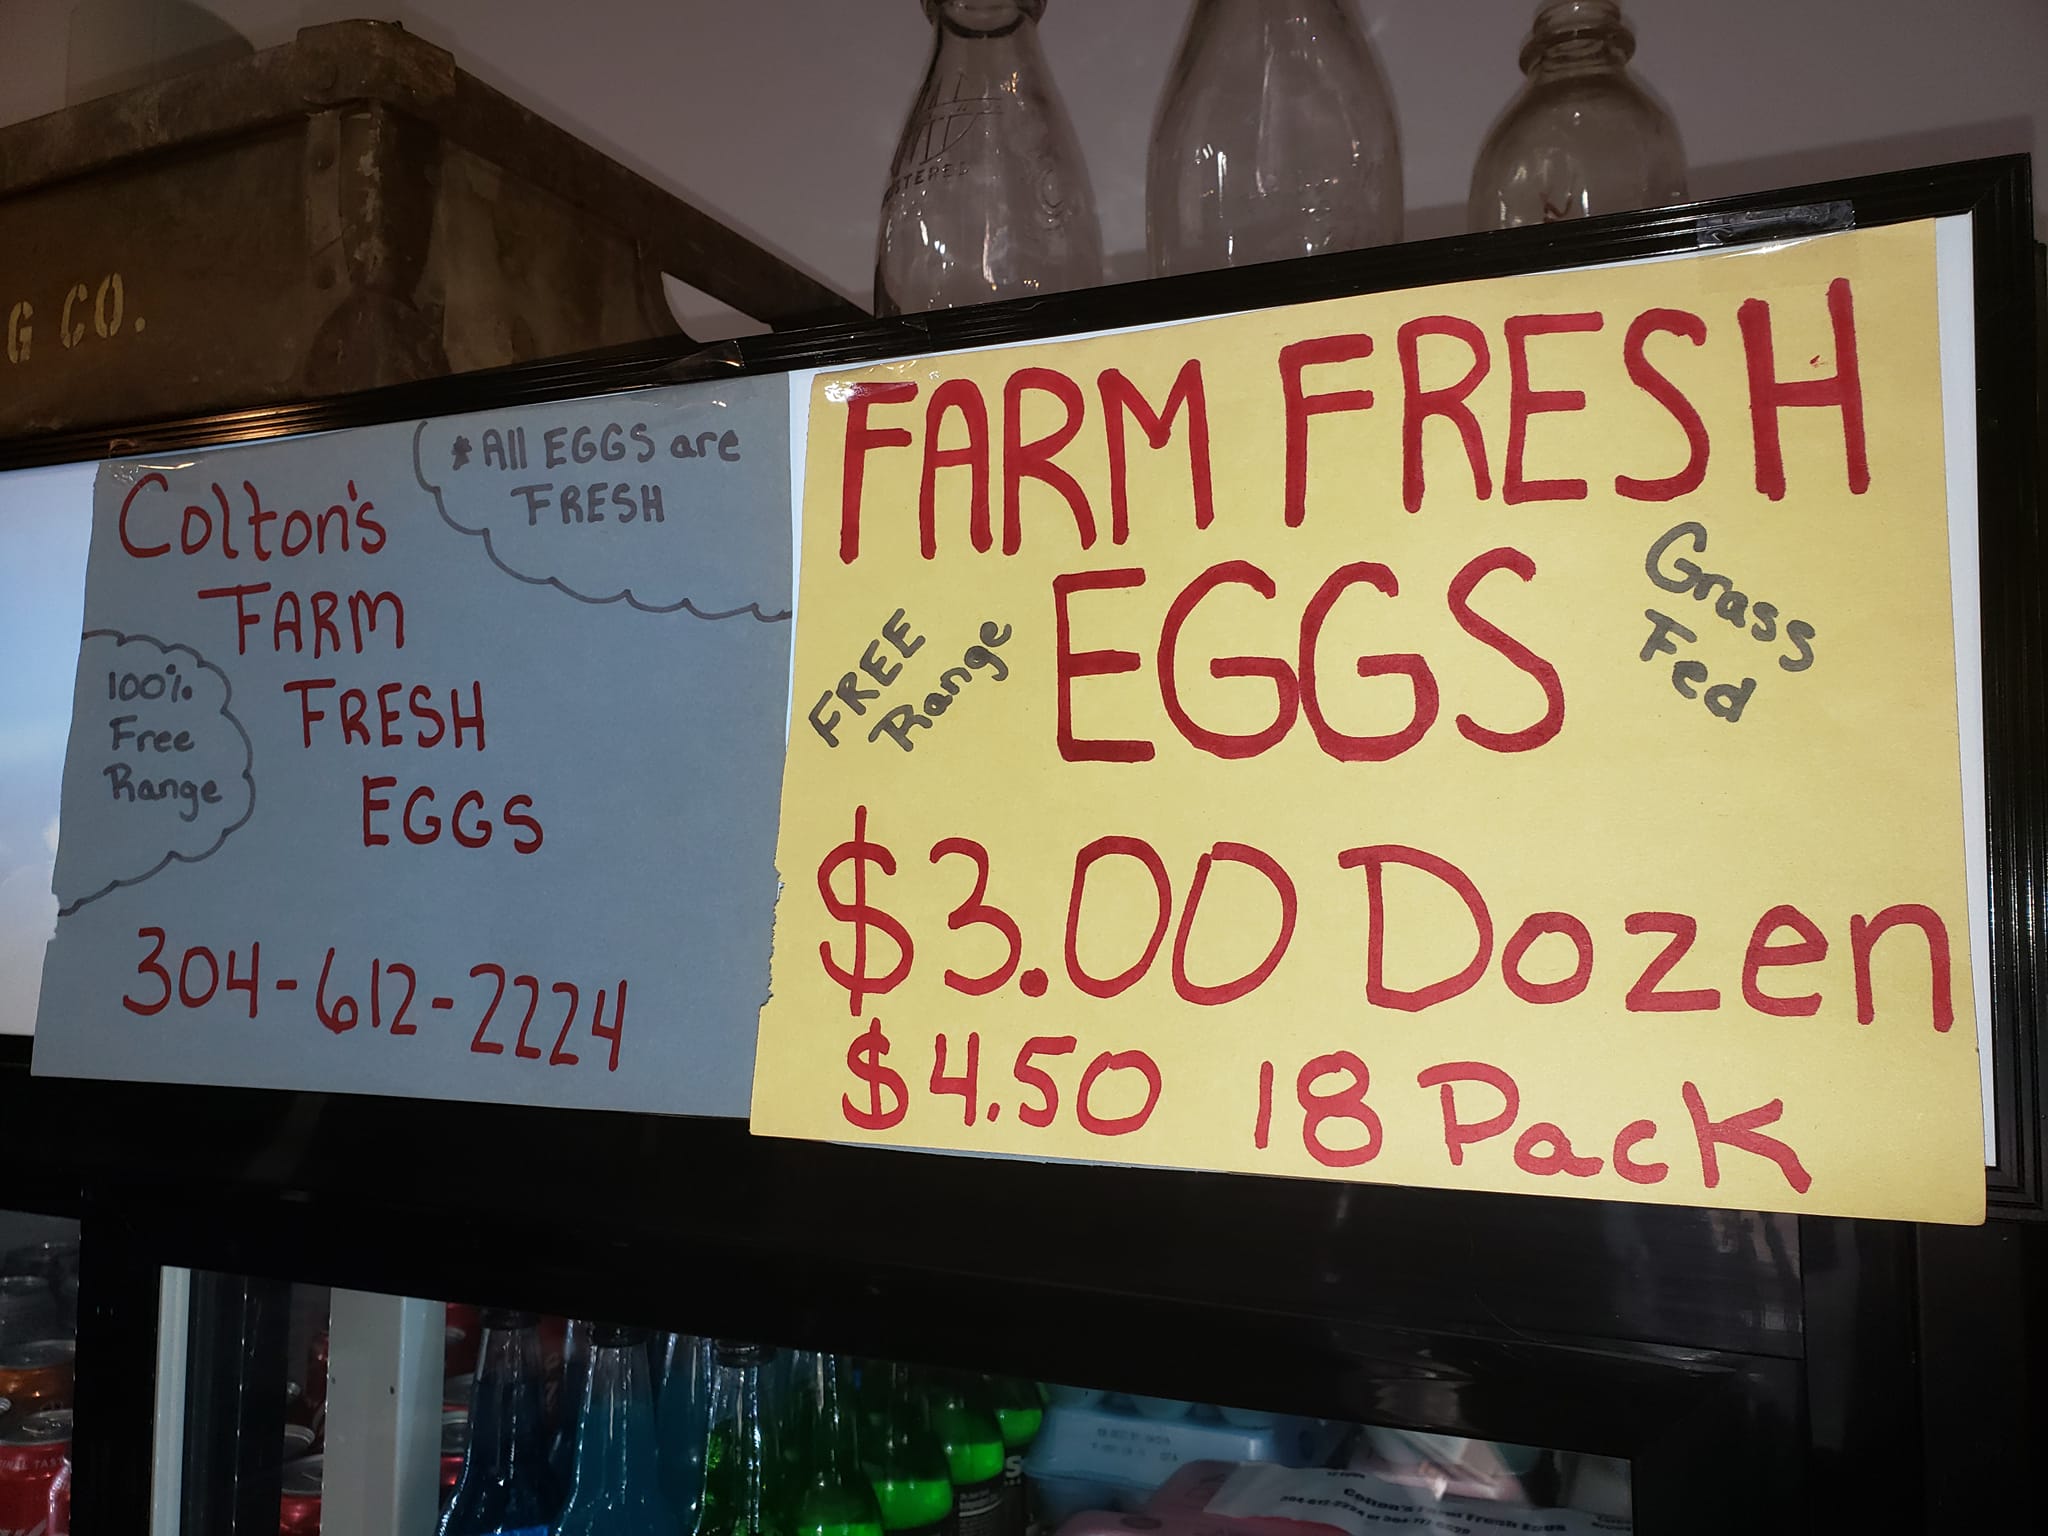 G CO.
Colton's
FARM
FRESH
EGGS
* All EGGS are
FRESH
100%
Free
Range
304-612-2224
FARM FRESH
EGGS
FREE
Range
Grass
Fed
$3.00 Dozen
$4.50 18 Pack
Colton's Farm Fresh Eggs